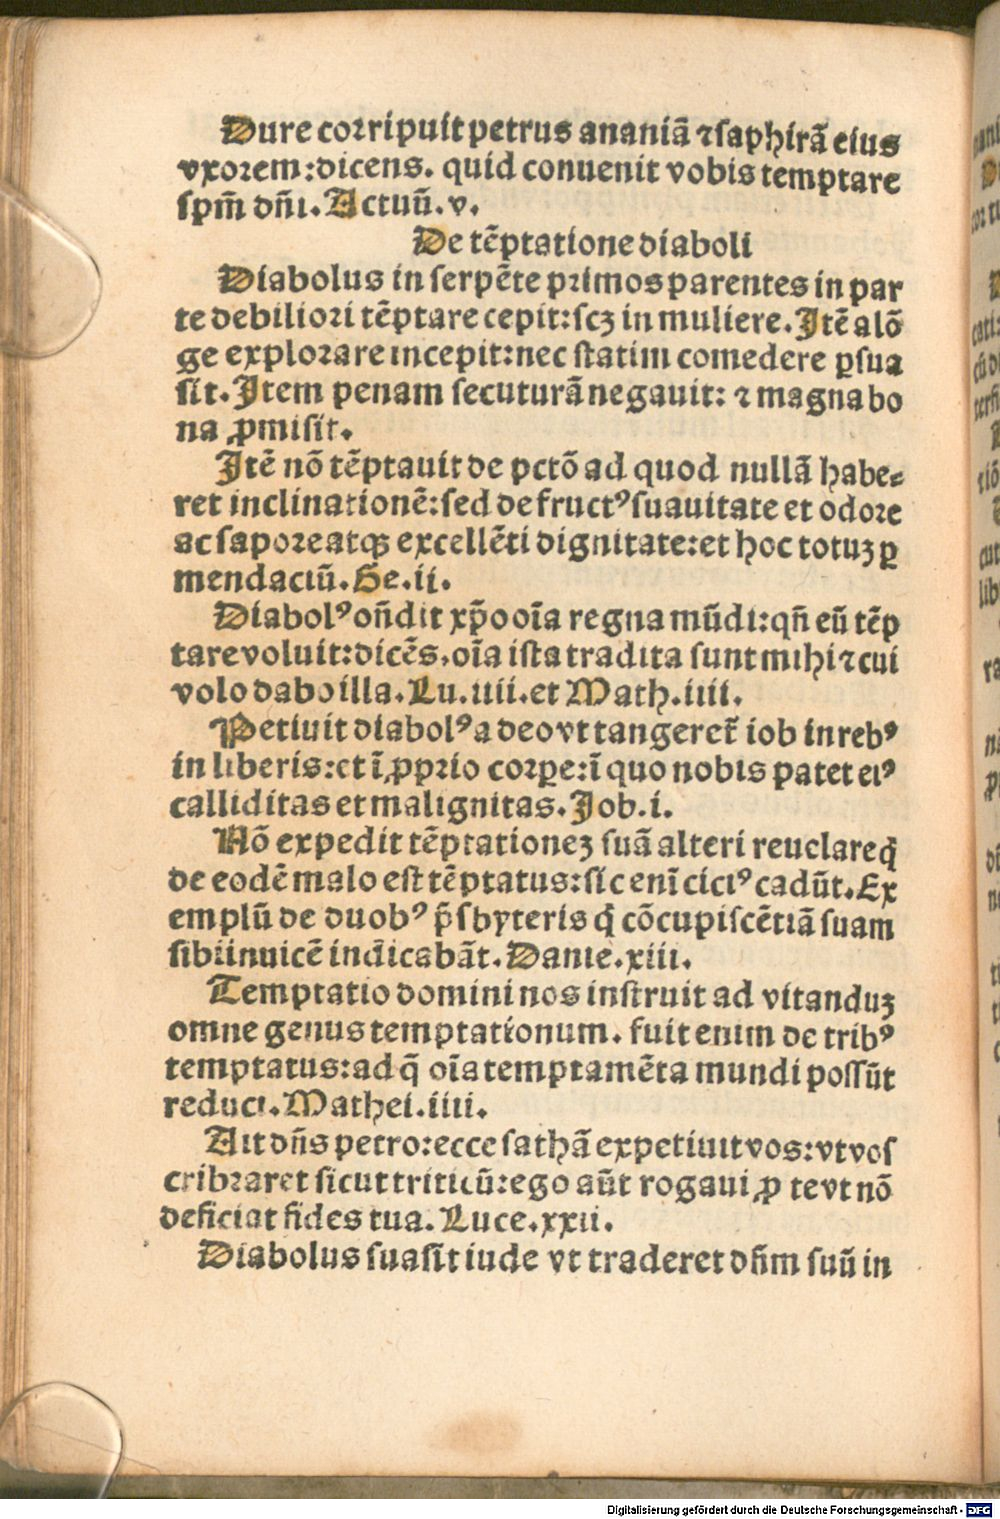 Dure corripuit petrus ananiā ⁊saphirā eius
vxorem:dicens. quid conuenit vobis temptare
spm̄ dn̄i. Actuū. v.
De tēptatione diaboli
Diabolus in serpēte primos parentes in par
te debiliori tēptare cepit:scꝫ in muliere. Itē alō
ge explorare incepit:nec statim comedere ꝑsua
sit. Item penam secuturā negauit: ⁊ magna bo
na ꝓmisit.
Itē nō tēptauit de pctō ad quod nullā habe⸗
ret inclinationē:sed de fructꝰ suauitate et odore
ac sapore atqꝫ excellēti dignitate:et hoc totuꝫ ꝑ
mendaciū. Ge. ii.
Diabolꝰ on̄dit xp̄o oīa regna mūdi:qn̄ eū tēp
tare voluit:dicēs. oīa ista tradita sunt mihi ⁊ cui
volo dabo illa. Lu. iiii. et Math. iiii.
Petiuit diabolꝰ a deo vt tangeret̄ iob in rebꝰ
in liberis:et ī ꝓprio corꝑe:ī quo nobis patet eiꝰ
calliditas et malignitas. Job. i.
Nō expedit tēptationeꝫ suā alteri reuelare q̄
de eodē malo est tēptatus:sic enī citiꝰ cadūt. Ex
emplū de duobꝰ p̄sbyteris q̄ cōcupiscētiā suam
sibiinuicē indicabāt. Danie. xiii.
Temptatio domini nos instruit ad vitanduꝫ
omne genus temptationum. fuit enim de tribꝰ
temptatus:ad q̄ oīa temptamēta mundi possūt
reduci. Mathei. iiii.
Ait dn̄s petro:ecce sathā expetiuit vos:vt vos
cribraret sicut triticū:ego aūt rogaui ꝓ te vt nō
deficiat fides tua. Luce. xxii.
Diabolus suasit iude vt traderet dn̄m suū in
Digitalisierung gefördert durch die Deutsche Forschungsgemeinschaft - DFG